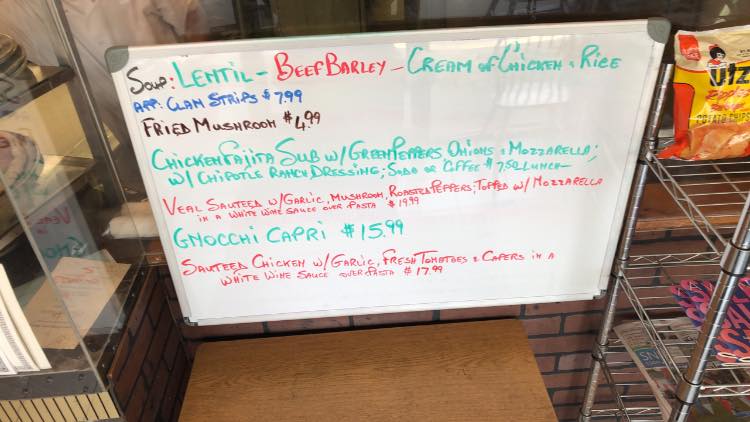 Soup: Lentil - Beef Barley - Cream of Chicken & Rice
App: Clam Strips $7.99
Fried Mushroom $4.99
Chicken Fajita Sub w/ Green Peppers Onions & Mozzarella;
w/ Chipotle Ranch Dressing; Soda or Coffee $7.50 Lunch
Veal Sauteed w/ Garlic, Mushroom, Roasted Peppers; Topped w/ Mozzarella
in a White Wine Sauce over Pasta $19.99
Gnocchi Capri $15.99
Sauteed Chicken w/ Garlic, Fresh Tomatoes & Capers in a
White Wine Sauce over Pasta $17.99
Utz
Potato Chips